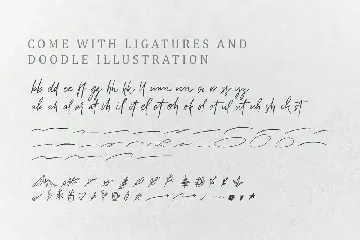 COME WITH LIGATURES AND
DOODLE ILLUSTRATION
bb dd ee ff gg hh kk ll mm nn oo rr ss yy
ab ch al ar at ch il et el et oh ok ol ot ul ut uh sh ck st